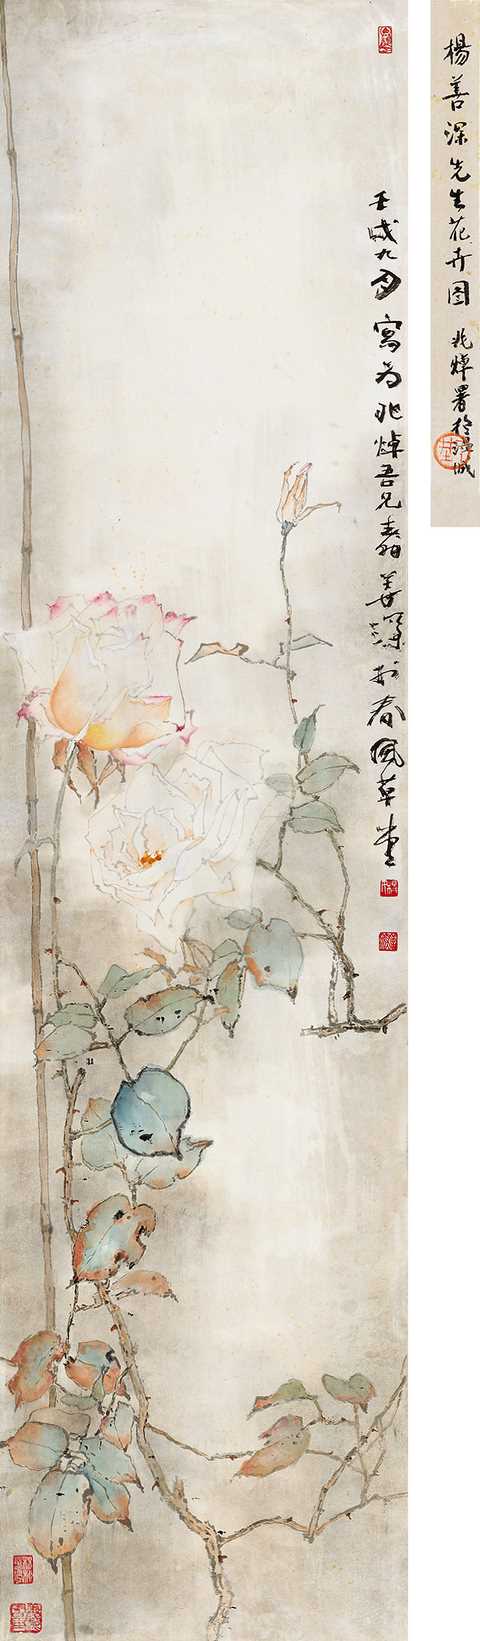 楊善深先生花卉图 兆焯署於城
壬戌九月寫为兆焯吾兄善深於春風草堂